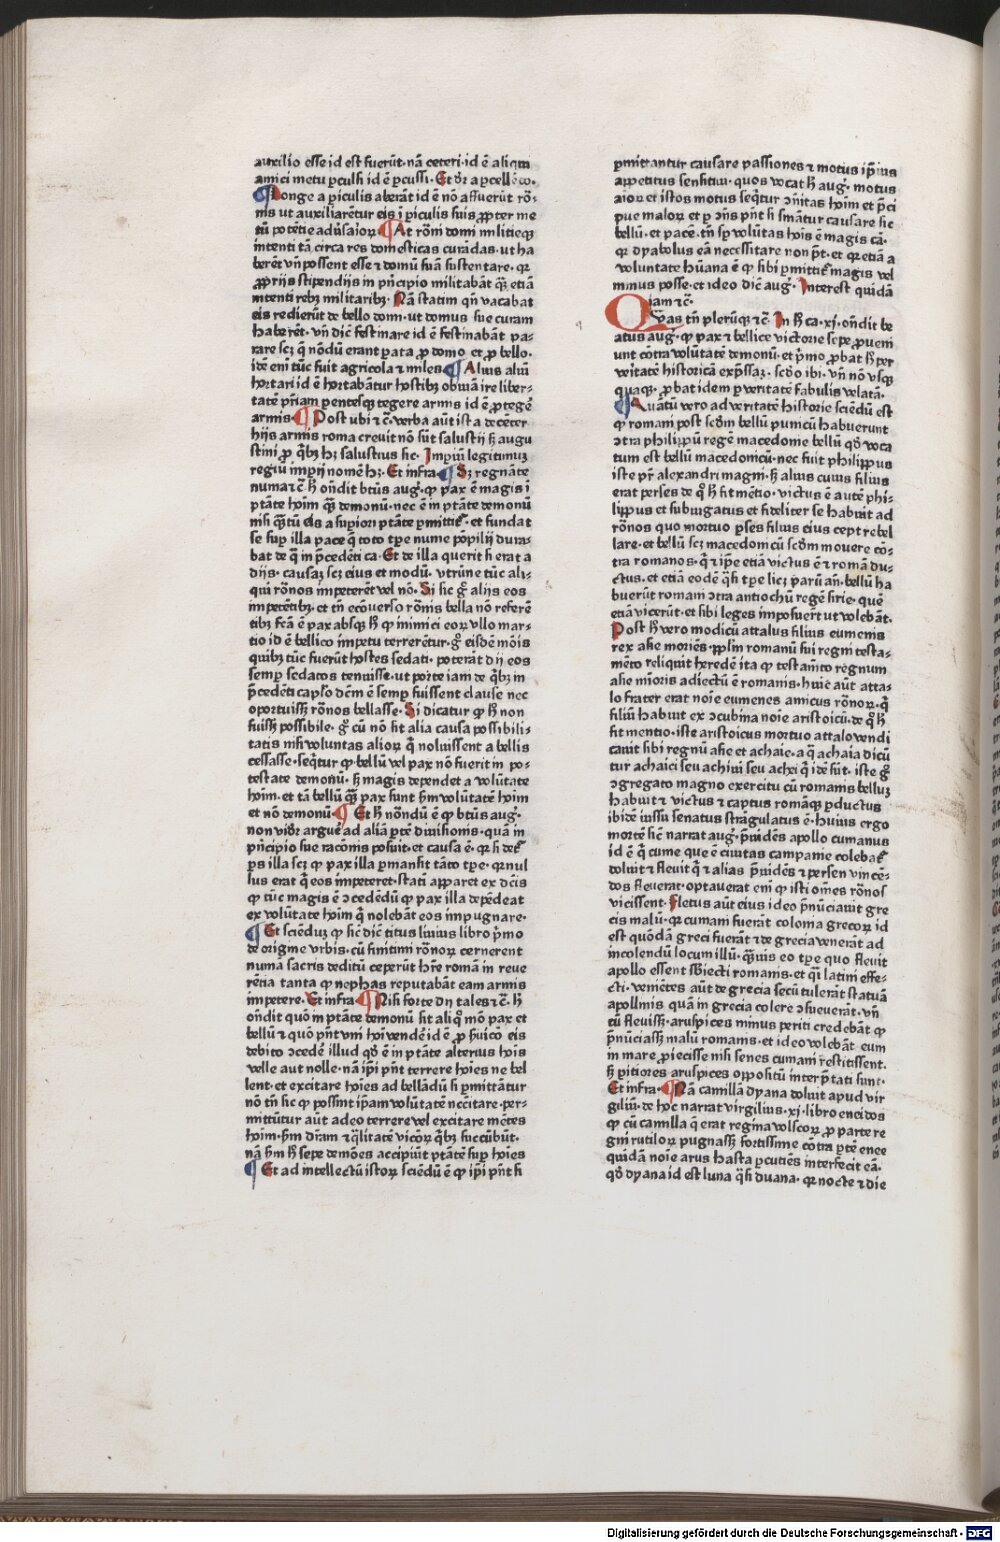 auxilio esse id est fuerūt· nā ceteri· id ē aliqm̄
amici metu pculsi id ē pcussi· Et dr̄ a pcello·
¶ Longe a piculis aberāt id ē nō affuerūt rō⸗
nis ut auxiliarētur eis ī piculis suis ꝓpter me
tū potētie adūsarioꝝ ¶ At rōni domi militieqꝫ
intenti tā circa res domesticas curādas· ut ha
berēt vn̄ possent esse ⁊ domū suā sustentare· qꝛ
ꝓprijs stipendijs in pn̄cipio militabāt qͣꝫ etiā
intenti rebꝫ militaribꝫ· Nā statim qn̄ vacabat
eis redierūt de bello domi· ut domus sue curam
haberēt· vn̄ dic̄ festinare id ē festinabāt pa⸗
rare scꝫ q̄ nōdū erant pata ꝓ domo et ꝓ bello·
idē eni tūc fuit agricola ⁊ miles ¶ Alius aliū
hortari id ē hortabātur hostibꝫ obuiā ire liber⸗
tatē pr̄iam pentesqꝫ tegere armis id ē ꝓtegē
armis ¶ Post ubi ⁊c̄· verba aūt ista decēter
hijs armis roma creuit nō sūt salustij sꝫ augu
stini ꝓ qͥbꝫ hꝫ salustius sic· Impiū legitimuꝫ
regiū impij nomē hꝫ· Et infra ¶ Sꝫ regnāte
numa ⁊c̄ h̄ on̄dit btūs aug᷒ ꝙ pax ē magis ī
ptāte hoim qͣꝫ demonū· nec ē in ptāte demonū
nisi qͣꝫtū eis a supiori ptāte pmittit᷒· et fundat
se sup illa pace q̄ toto tpe nume pōpilij dura⸗
bat de q̄ in pcedēti ca· Et de illa querit si erat a
dijs· causaꝫ scꝫ eius et modū· vtrūne tūc ali⸗
qui rōnos impeterēt vel nō· Si sic gͦ alijs eos
impetētibꝫ· et tn̄ ecōuerso rōnis bella nō referē
tibꝫ scā ē pax absqꝫ h̄ ꝙ inimici eoꝝ vllo mar⸗
tio id ē bellico impetu terrerētur· gͦ eisdē mōis
quibꝫ tūc fuerūt hostes sedati· poterāt dij eos
semp sedatos tenuisse· ut porte iam de qͥbꝫ in
pcedēti caplo dc̄m ē semp fuissent clause nec
oportuissꝫ rōnos bellasse· Si dicatur ꝙ h̄ non
fuissꝫ possibile· gͦ cū nō sit alia causa possibili⸗
tatis nisi voluntas alioꝝ q̄ noluissent a bellis
cessasse· seqͣtur ꝙ bellū vel pax nō fuerit in po⸗
testate demonū· sꝫ magis dependet a volūtate
hoim· et tā bellū qͣꝫ pax sunt scd̄m volūtatē hoim
et nō demonū ¶ Et h̄ nōndū ē ꝙ btūs aug᷒·
non vidr̄ argue ad aliā ptē diuisionis· quā in
pn̄cipio sue racōnis posuit· et causa ē· qꝛ si det᷒
ps illa scꝫ ꝙ pax illa pmansit tāto tpe· qꝛ nul
lus erat q̄ eos impeteret· statī apparet ex dc̄is
ꝙ tūc magis ē ↄcedēdū ꝙ pax illa depēdeat
ex volūtate hoim q̄ nolebāt eos impugnare·
¶ Et sciēduꝫ ꝙ sic dic̄ titus liuius libro pͥmo
de origine vrbis· cū finitimi rōnoꝝ cernerent
numā sacris deditū ceperūt hr̄e romā in reue
rētia tanta ꝙ nephas reputabāt eam armis
impetere· Et infra ¶ Nisi forte dij tales ⁊c̄· h̄
on̄dit quō in ptāte demonū sit aliqͦ mō pax et
bellū ⁊ quō pn̄t vni hoi vendē id ē ꝓ suicō eis
debito ↄcedē illud qd̄ ē in ptāte alterius hois
velle aut nolle· nā ipi pn̄t terrere hoies ne bel
lent· et excitare hoies ad bellādū si pmittātur
nō tn̄ sic ꝙ possint ipam volūtatē nc̄citare· per⸗
mittūtur aūt adeo terrere vel excitare mētes
hoim· scd̄m dr̄am ⁊ qͣlitatē vicioꝝ qͥbꝫ succūbūt·
nā scd̄m h̄ sepe demōes accipiūt ptātē sup hoies
¶ Et ad intellectū istoꝝ sciēdū ē ꝙ ipi pn̄t si
pmittantur causare passiones ⁊ motus ipius
appetitus sensitiui· quos vocat h̄ aug᷒· motus
aioꝝ et istos motus seqͣtur ↄn̄itas hoim et pci
pue maloꝝ et p ↄn̄s pn̄t si sināt᷒ causare sic
bellū· et pacē· tn̄ sp volūtas hois ē magis cā·
qꝛ dyabolus eā necessitare non pt̄· et qꝛ etiā a
voluntate hūana ē ꝙ sibi pmittit᷒ magis vel
minus posse· et ideo dic̄ aug᷒· Interest quidā
iam ⁊c̄·
Quas tn̄ plerūqꝫ ⁊c̄· In h̄ ca· xj· on̄dit be
atus aug᷒· ꝙ pax ⁊ bellice victorie sepe ꝓueni
unt cōtra volūtatē demonū· et pͥmo ꝓbat h̄ ꝑ
veritatē historicā exp̄ssaꝫ· scd̄o ibi· vn̄ nō vsqꝫ
quaqꝫ· ꝓbat idem p veritatē fabulis velatā·
¶ Quātū vero ad veritatē historie sciēdū est
ꝙ romani post scd̄m bellū punicū habuerunt
ↄtra philippū regē macedonie bellū qd̄ voca
tum est bellū macedonicū· nec fuit philippus
iste pr̄ alexandri magni· sꝫ alius cuius filius
erat perses de qͦ h̄ fit mētio· victus ē autē phi⸗
lippus et subiugatus et fideliter se habuit ad
rōnos quo mortuo pses filius eius cepit rebel
lare· et bellū scꝫ macedonicū scd̄m mouere cō⸗
tra romanos· q̄ ⁊ ipe etiā victus ē ⁊ romā du⸗
ctus· et etiā eodē qͣsi tpe licꝫ parū an̄· bellū ha
buerūt romani ↄtra antiochū regē sirie· quē
etiā vicerūt· et sibi leges imposuer̄t ut volebāt·
Post h̄ vero modicū attalus filius eumenis
rex asie moriēs· pplm̄ romanū sui regni testa⸗
mēto reliquit heredē ita ꝙ testam̄to regnum
asie mīoris adiectū ē romanis· huic aūt atta⸗
lo frater erat noīe eumenes amicus rōnoꝝ· q̄
filiū habuit ex ↄcubina noīe aristoicū· de qͦ h̄
fit mentio· iste aristoicus mortuo attalo vendi
cauit sibi regnū asie et achaie· a q̄ achaia dicū
tur achaici seu achiui seu achei q̄ idē sūt· iste gͦ
ↄgregato magno exercitu cū romanis belluꝫ
habuit ⁊ victus ⁊ captus romāqꝫ pductus
ibidē iussu senatus strāgulatus ē· Huius ergo
mortē sic narrat aug᷒· pͥuidēs apollo cumanus
id ē q̄ cume que ē ciuitas campanie colebat᷒
doluit ⁊ fleuit q̄ ⁊ alias pͥuidēs ⁊ persen vincē⸗
dos fleuerat· optauerat eni ꝙ isti om̄es rōnos
vicissent· Fletus aūt eius ideo pn̄ūciauit gre
cis malū· qꝛ cumani fuerāt colonia grecoꝝ id
est quōdā greci fuerāt ⁊ de grecia venerāt ad
incolendū locum illū· qͣꝫuis eo tpe quo fleuit
apollo essent sb̄iecti romanis· et qͣi latini effe⸗
cti· veniētes aūt de grecia secū tulerāt statuā
apollinis quā in grecia colere ↄsueuerāt· vn̄
cū fleuissꝫ· aruspices minus periti credebāt ꝙ
pn̄ūciassꝫ malū romanis· et ideo volebāt eum
in mare ꝓiecisse nisi senes cumani restitissent·
sꝫ pitiores aruspices oppositū interp̄tati sunt·
Et infra· ¶ Nā camillā dyana doluit apud vir
giliū· de hoc narrat virgilius· xj· libro eneidos
ꝙ cū camilla q̄ erat regina volscoꝝ ꝓ parte re
gni rutiloꝝ pugnassꝫ fortissime cōtra ptē enee
quidā noīe arus hasta pcutiēs interfecit eā·
qd̄ dyana id est luna qͣsi duana· qꝛ nocte ⁊ die
Digitalisierung gefördert durch die Deutsche Forschungsgemeinschaft - DFG